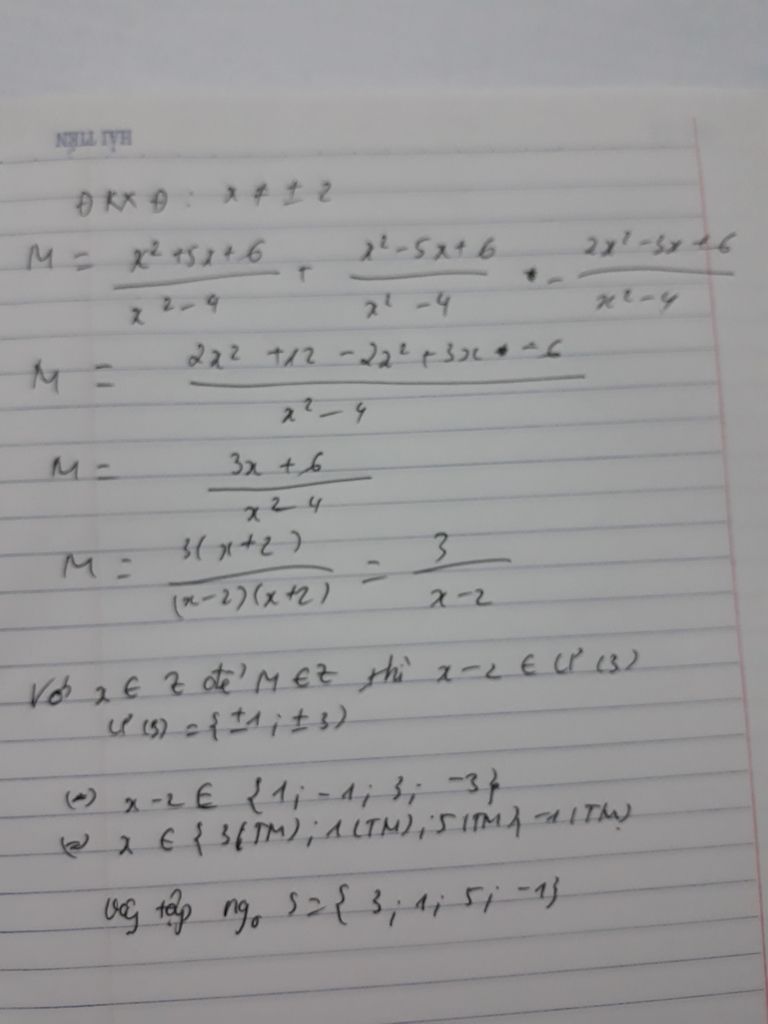 HẢI TIẾN
ĐKXĐ: x ≠ ± 2
M = (x² + 5x + 6)/(x² - 4) + (x² - 5x + 6)/(x² - 4) - (2x² - 3x + 6)/(x² - 4)
M = (2x² + 12 - 2x² + 3x - 6)/(x² - 4)
M = (3x + 6)/(x² - 4)
M = 3(x+2)/((x-2)(x+2)) = 3/(x-2)
Với x ∈ Z để M ∈ Z thì x - 2 ∈ Ư(3)
Ư(3) = {±1; ±3)
(=) x - 2 ∈ {1; -1; 3; -3}
(=) x ∈ { 3(TM); 1(TM); 5(TM} -1(TM)
Vậy tập ngo S = { 3; 1; 5; -1}